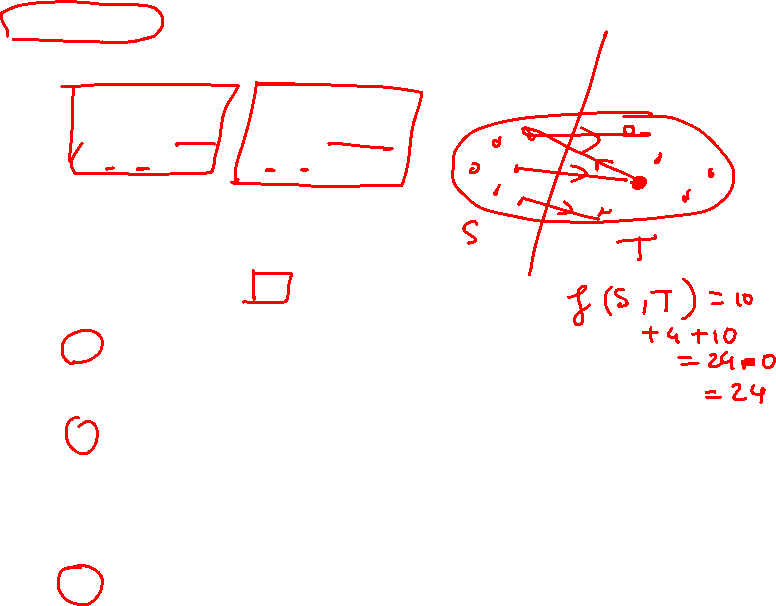 S
T
f(S,T) = 10
+4+10
= 24-0
= 24